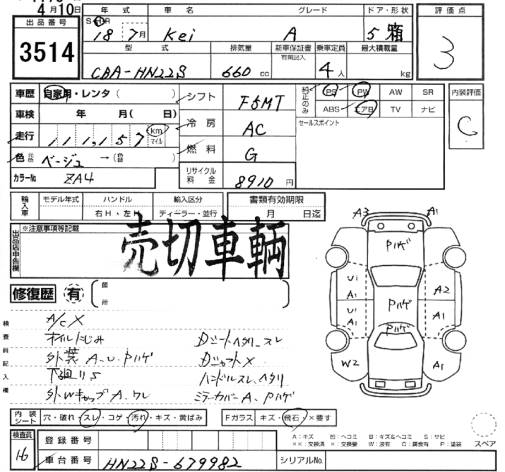 4月10日
出品番号
3514
年式
車名
グレード
ドア・形状
18年7月
Kei
A
5 箱
評価点
3
型式
排気量
新車保証書
有無記入
乗車定員
最大積載量
CBA-HN22S
660 cc
4人
kg
車歴 自家用・レンタ( )
シフト F5MT
純正のみ
PS PW AW SR
ABS エアB TV ナビ
内装評価
C
車検 年 月( 日)
冷房 AC
セールスポイント
走行 111,157 km マイル
燃料 G
色 ベージュ →( )
カラーNo ZA4
リサイクル料金 8910円
輸入車
モデル年式
ハンドル
右H・左H
輸入区分
ディーラー・並行
書類有効期限
月 日迄
※注意事項等記載
売切車輌
修復歴 有
箇所
検査員記入欄
A/C X
オイルにじみ
外装 A.U.Pハゲ
下廻りS
外WキャップA.ワレ
Dシートヘタリ・スレ
DシャットX
ハンドルスレ、ヘタリ
ミラーカバーA.Pハゲ
A3
A1
Pハゲ
U1
A1
A2
A1
Pハゲ
U1
A1
Pハゲ
W2
A1
スペア
内装シート
穴・破れ・スレ・コゲ・汚れ・キズ・黄ばみ
Fガラス キズ・飛石・×要す
A:キズ U:ヘコミ B:キズ&ヘコミ S:サビ
××:交換済 ×:交換要 W:波有 C:腐食有 P:塗装
検査員
16
登録番号
車台番号 HN22S-679982
シリアルNo.